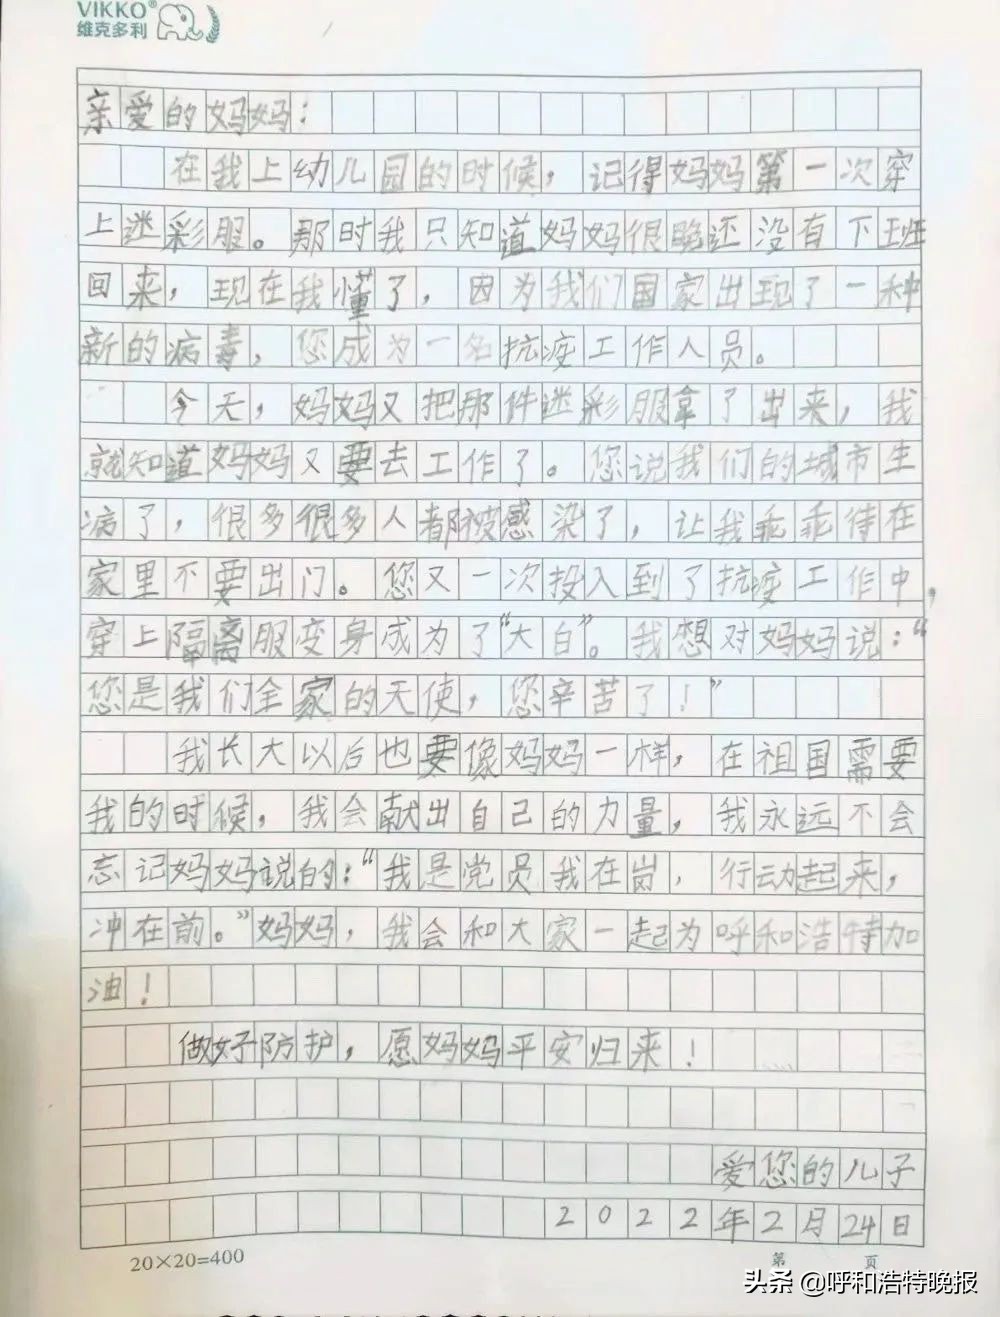 VIKKO®
维克多利
亲爱的妈妈：
在我上幼儿园的时候，记得妈妈第一次穿
上迷彩服。那时我只知道妈妈很晚还没有下班
回来，现在我懂了，因为我们国家出现了一种
新的病毒，您成为一名抗疫工作人员。
今天，妈妈又把那件迷彩服拿了出来，我
就知道妈妈又要去工作了。您说我们的城市生
病了，很多很多人都被感染了，让我乖乖待在
家里不要出门。您又一次投入到了抗疫工作中，
穿上隔离服变身成为了“大白”。我想对妈妈说：“
您是我们全家的天使，您辛苦了！”
我长大以后也要像妈妈一样，在祖国需要
我的时候，我会献出自己的力量，我永远不会
忘记妈妈说的：“我是党员我在岗，行动起来，
冲在前。”妈妈，我会和大家一起为呼和浩特加
油！
做好防护，愿妈妈平安归来！
爱您的儿子
2022年2月24日
20×20=400
第 页
头条 @呼和浩特晚报